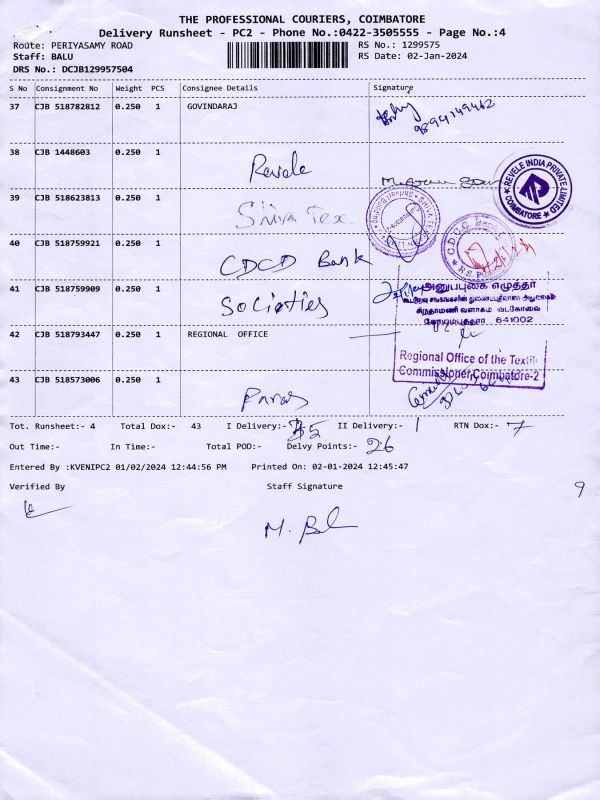 THE PROFESSIONAL COURIERS, COIMBATORE
Delivery Runsheet - PC2 - Phone No.:0422-3505555 - Page No.:4
Route: PERIYASAMY ROAD RS No.: 1299575
Staff: BALU RS Date: 02-Jan-2024
DRS No.: DCJB129957504
S No Consignment No Weight PCS Consignee Details Signature
37 CJB 518782812 0.250 1 GOVINDARAJ
9894149462
38 CJB 1448603 0.250 1
Revele
REVELE INDIA PRIVATE LIMITED
COIMBATORE
39 CJB 518623813 0.250 1
Shiva Tex
SHIVA TEX
40 CJB 518759921 0.250 1
CDCD Bank
41 CJB 518759909 0.250 1
Societies
அனுப்புகை எழுத்தர்
சிந்தாமணி வளாகம் வடகோவை
கோயமுத்தூர் 641002
42 CJB 518793447 0.250 1 REGIONAL OFFICE
Regional Office of the Textile
Commissioner, Coimbatore-2
43 CJB 518573006 0.250 1
Paras
Tot. Runsheet:- 4 Total Dox:- 43 I Delivery:- 35 II Delivery:- 1 RTN Dox:- 7
Out Time:- In Time:- Total POD:- Delvy Points:- 26
Entered By :KVENIPC2 01/02/2024 12:44:56 PM Printed On: 02-01-2024 12:45:47
Verified By Staff Signature 9
M. Bal